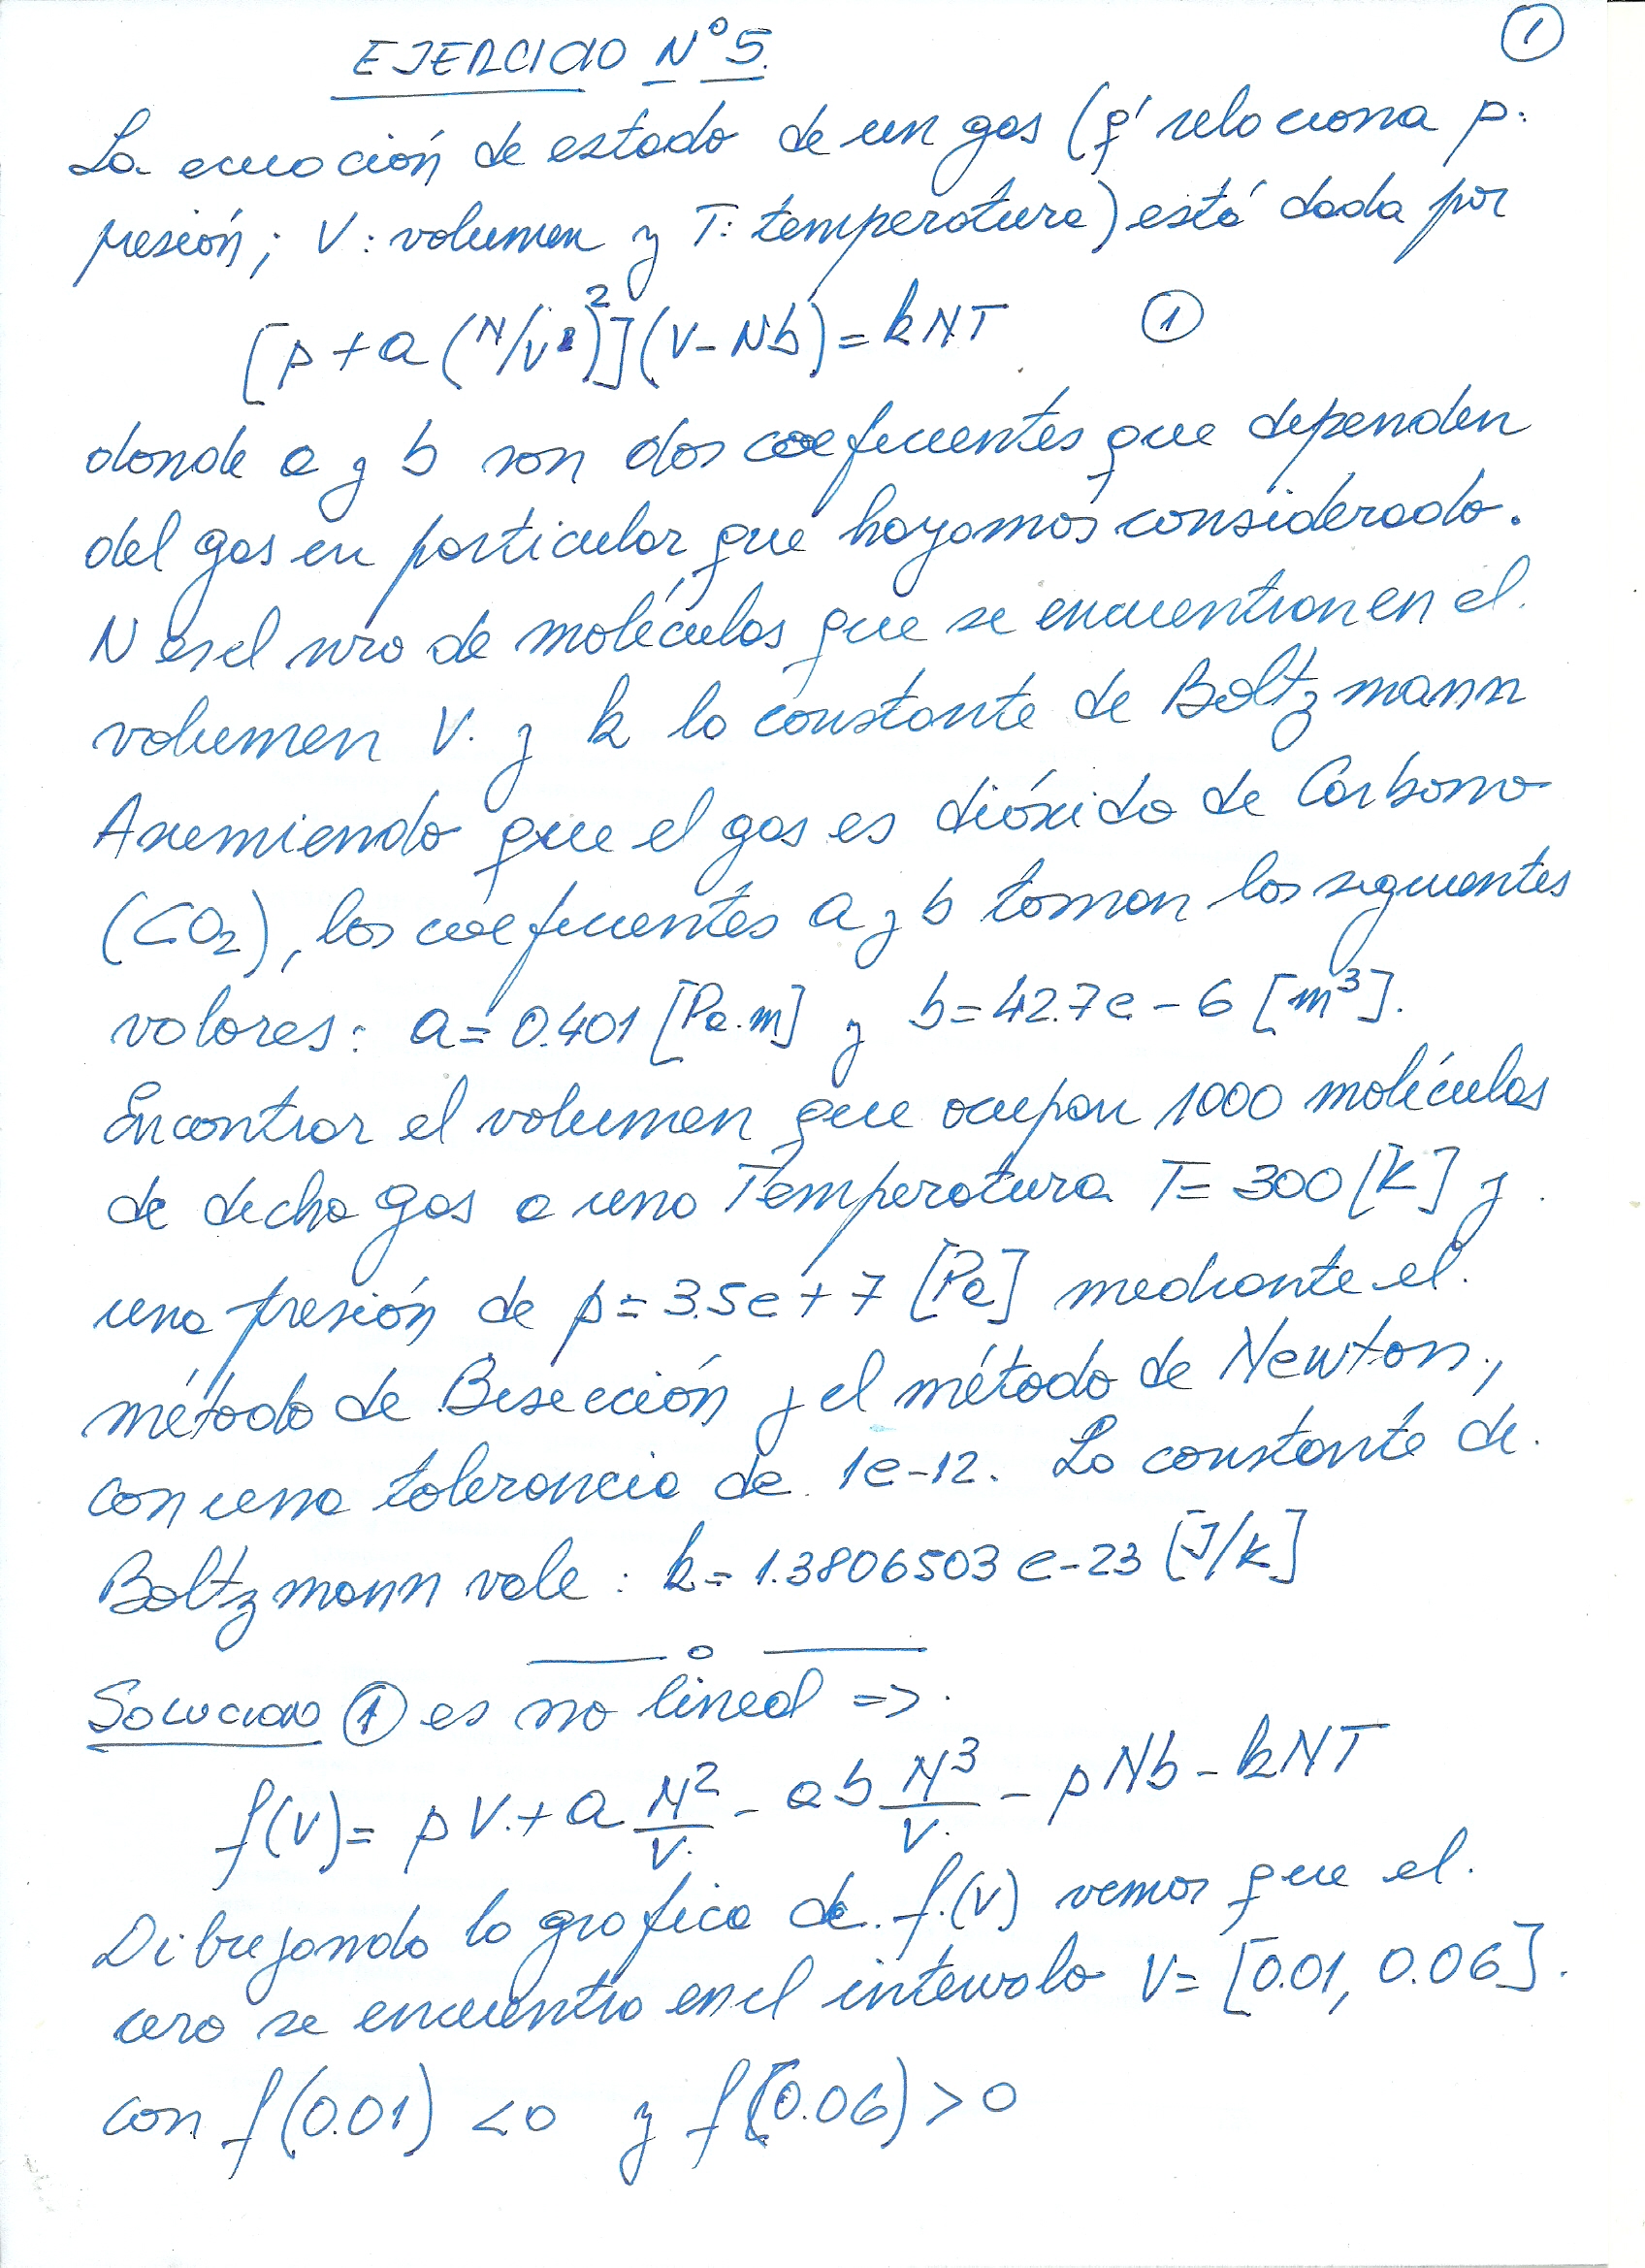 ①
EJERCICIO Nº 5.
La ecuación de estado de un gas (q' relaciona p:
presión; V: volumen y T: temperatura) está dada por
[p + a (N/V)²](V - Nb) = kNT ①
donde a y b son dos coeficientes que dependen
del gas en particular que hayamos considerado.
N es el nro de moléculas que se encuentran en el
volumen V. y k la constante de Boltzmann
Asumiendo que el gas es dióxido de Carbono
(CO₂), los coeficientes a y b toman los siguientes
valores: a = 0.401 [Pa.m] y b = 42.7e-6 [m³].
Encontrar el volumen que ocupan 1000 moléculas
de dicho gas a una Temperatura T = 300 [K] y
una presión de p = 3.5e+7 [Pa] mediante el
método de Bisección y el método de Newton,
con una tolerancia de 1e-12. La constante de
Boltzmann vale: k = 1.3806503e-23 [J/K]
Solucion ① es no lineal =>
f(V) = pV + a N²/V - ab N³/V - pNb - kNT
Dibujando la grafica de f(V) vemos que el
cero se encuentra en el intervalo V = [0.01, 0.06].
con f(0.01) < 0 y f(0.06) > 0